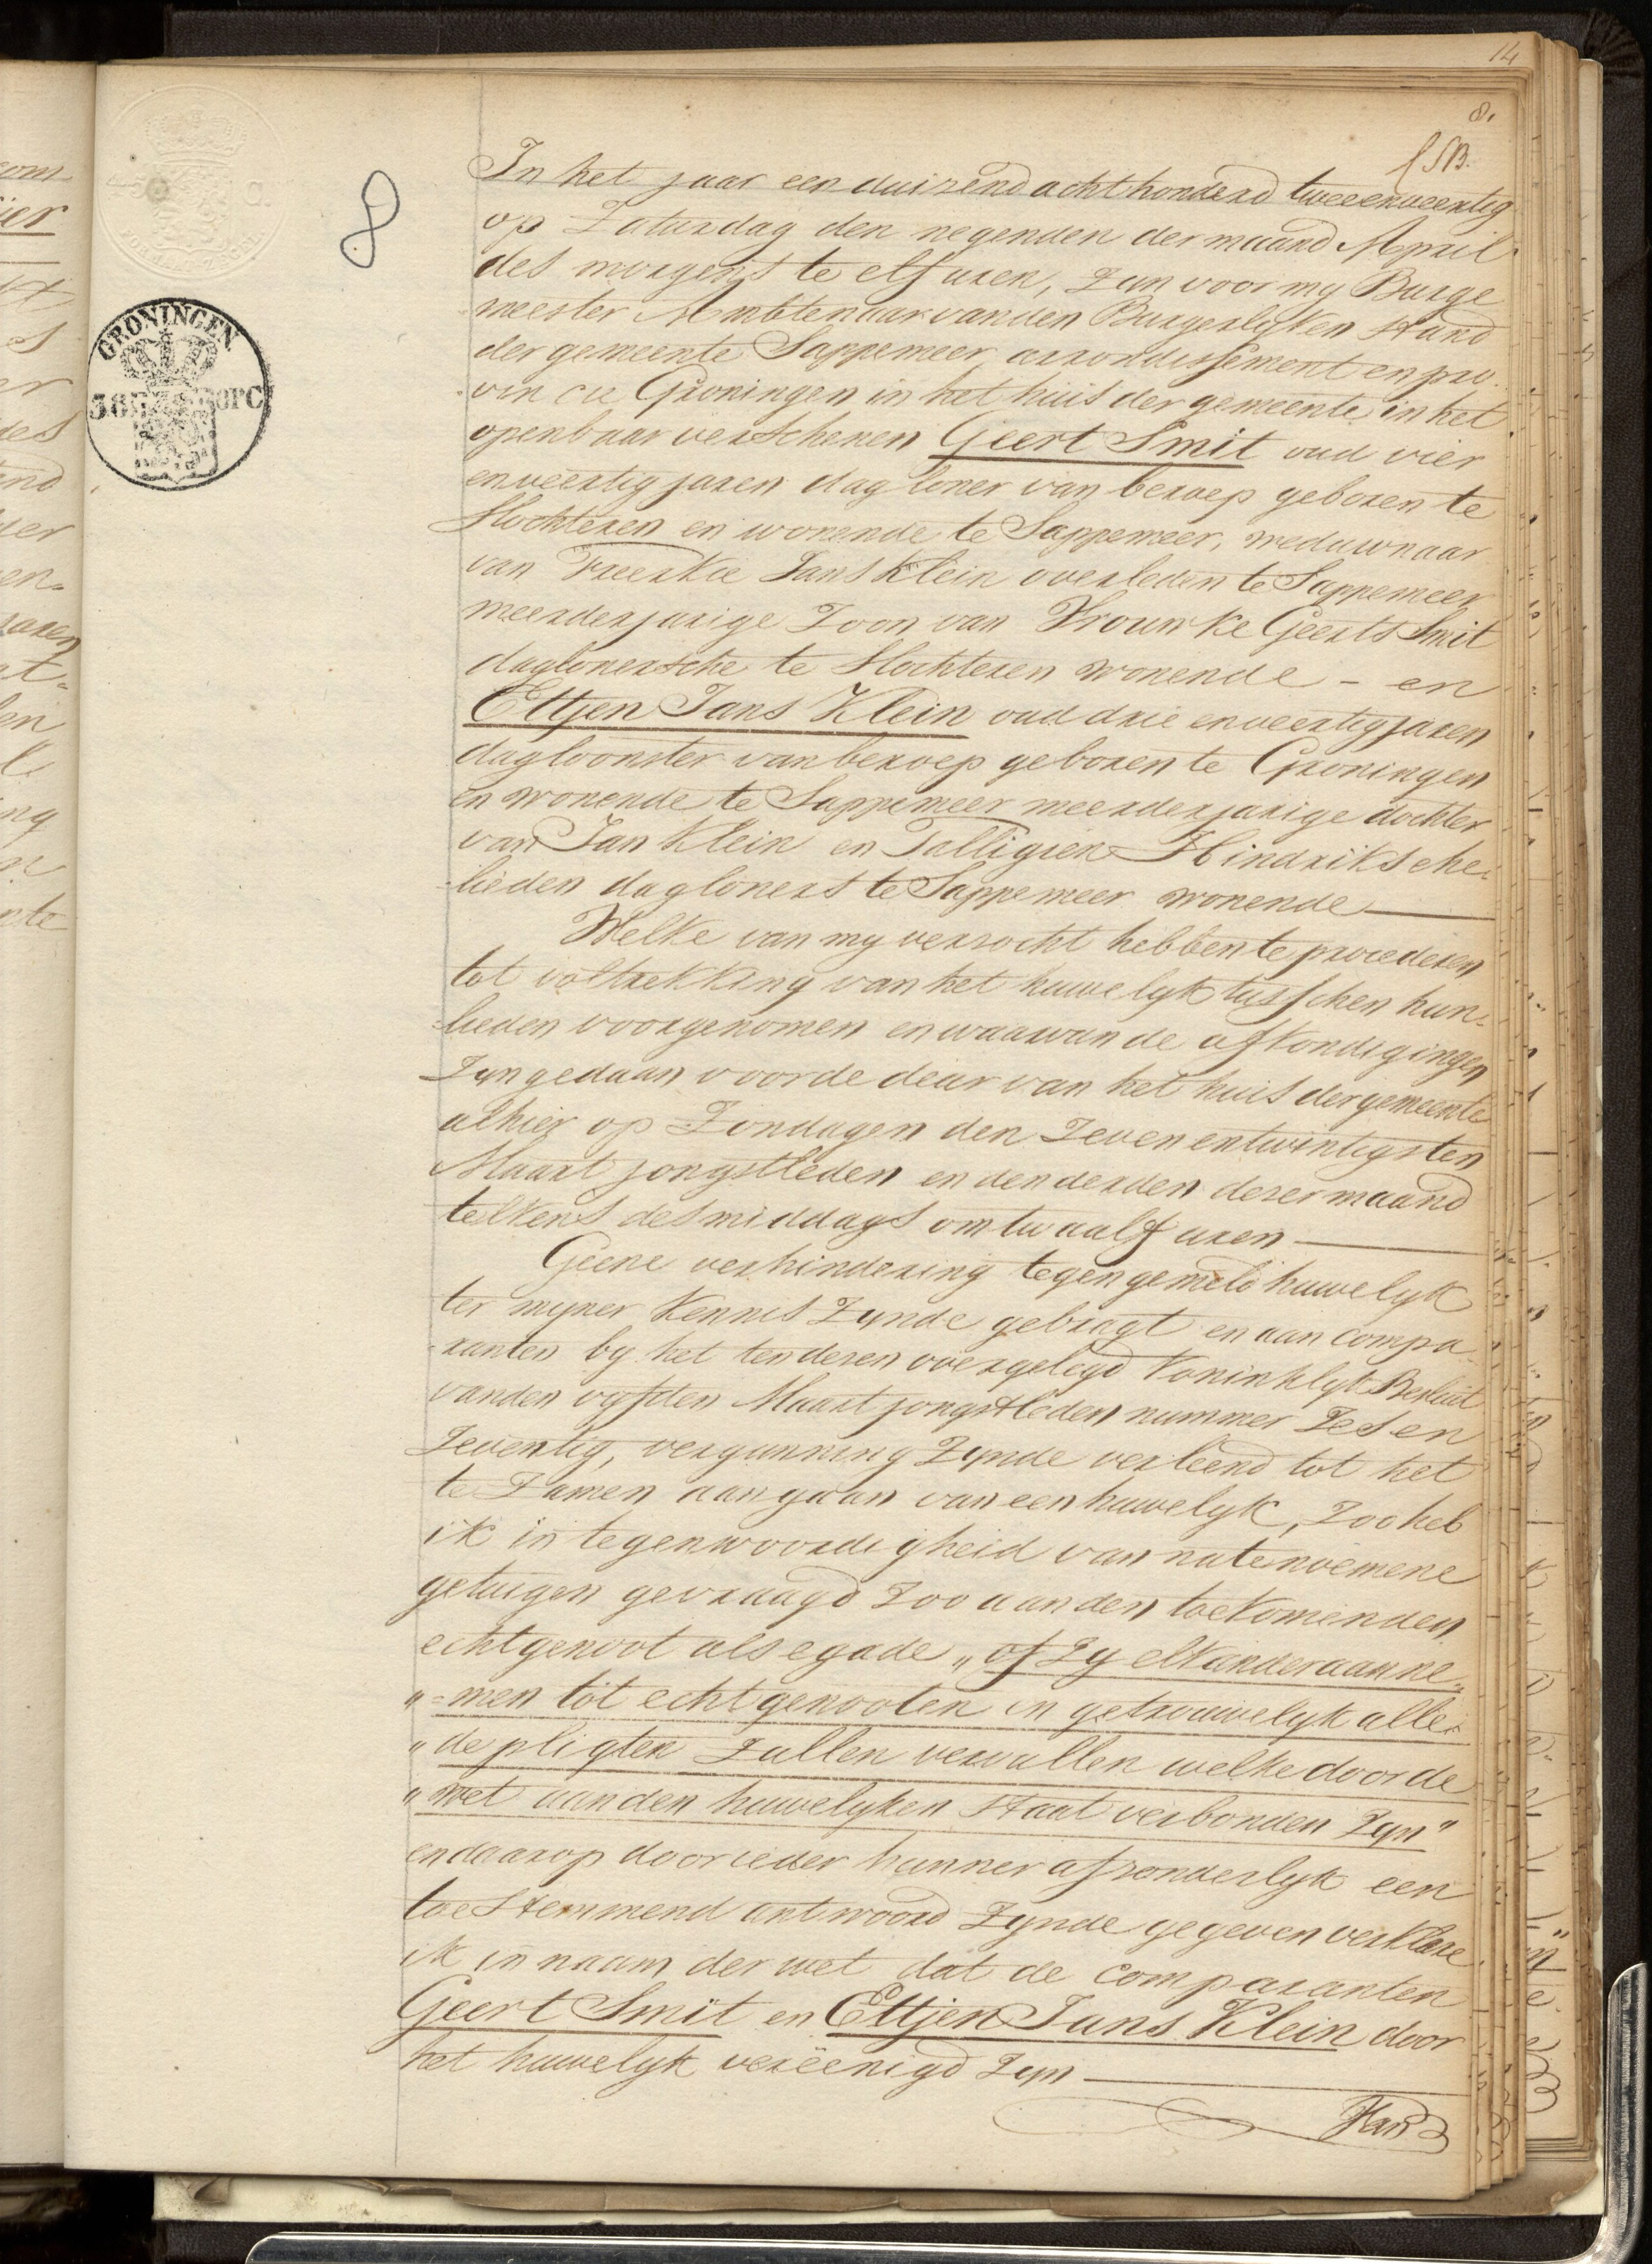 14
8.
8
GRONINGEN
38 OPC
In het jaar een duizend achthonderd tweeenveertig
op Zaturdag den negenden der maand April
des morgens te elf uren, zyn voor my Burge
meester Ambtenaar van den Burgerlyken stand
der gemeente Sappemeer arrondissement en pro
vincie Groningen in het huis der gemeente in het
openbaar verschenen Geert Smit oud vier
enveertig jaren dagloner van beroep geboren te
Slochteren en wonende te Sappemeer, weduwnaar
van Freerkie Jans Klein overleden te Sappemeer
meerderjarige Zoon van Vrouwke Geerts Smit
daglonersche te Slochteren wonende - en
Eltjen Jans Klein oud drie enveertig jaren
dagloonster van beroep geboren te Groningen
en wonende te Sappemeer meerderjarige dochter
van Jan Klein en Talligien Hindriks ehe-
lieden dagloners te Sappemeer wonende
Welke van my verzocht hebben te procederen
tot voltrekking van het huwelyk tusschen hun-
lieden voorgenomen en waarvan de afkondigingen
Zyn gedaan voor de deur van het huis der gemeente
alhier op Zondagen den Zevenentwintigsten
Maart jongstleden en den derden dezer maand
telkens des middags om twaalf uren
Geene verhindering tegen gemeld huwelyk
ter myner Kennis Zynde gebragt en aan compa
ranten by het ten dezen overgelegd Koninklyk Besluit
van den vyfden Maart jongstleden nummer Zes en
Zeventig, vergunning Zynde verleend tot het
te Zamen aangaan van een huwelyk, Zoo heb
ik in tegenwoordigheid van natenoemene
getuigen gevraagd Zoo aan den toekomenden
echtgenoot als egade „of Zy elkander aanne„
„=men tot echtgenooten en getrouwelyk alle
„de pligten Zullen vervullen welke door de
„wet aan den huwelyken staat verbonden Zyn"
en daarop door ieder hunner afzonderlyk een
toestemmend antwoord Zynde gegeven verklare
ik in naam der wet dat de comparanten
Geert Smit en Eltjen Jans Klein door
het huwelyk vereënigd Zyn
Van